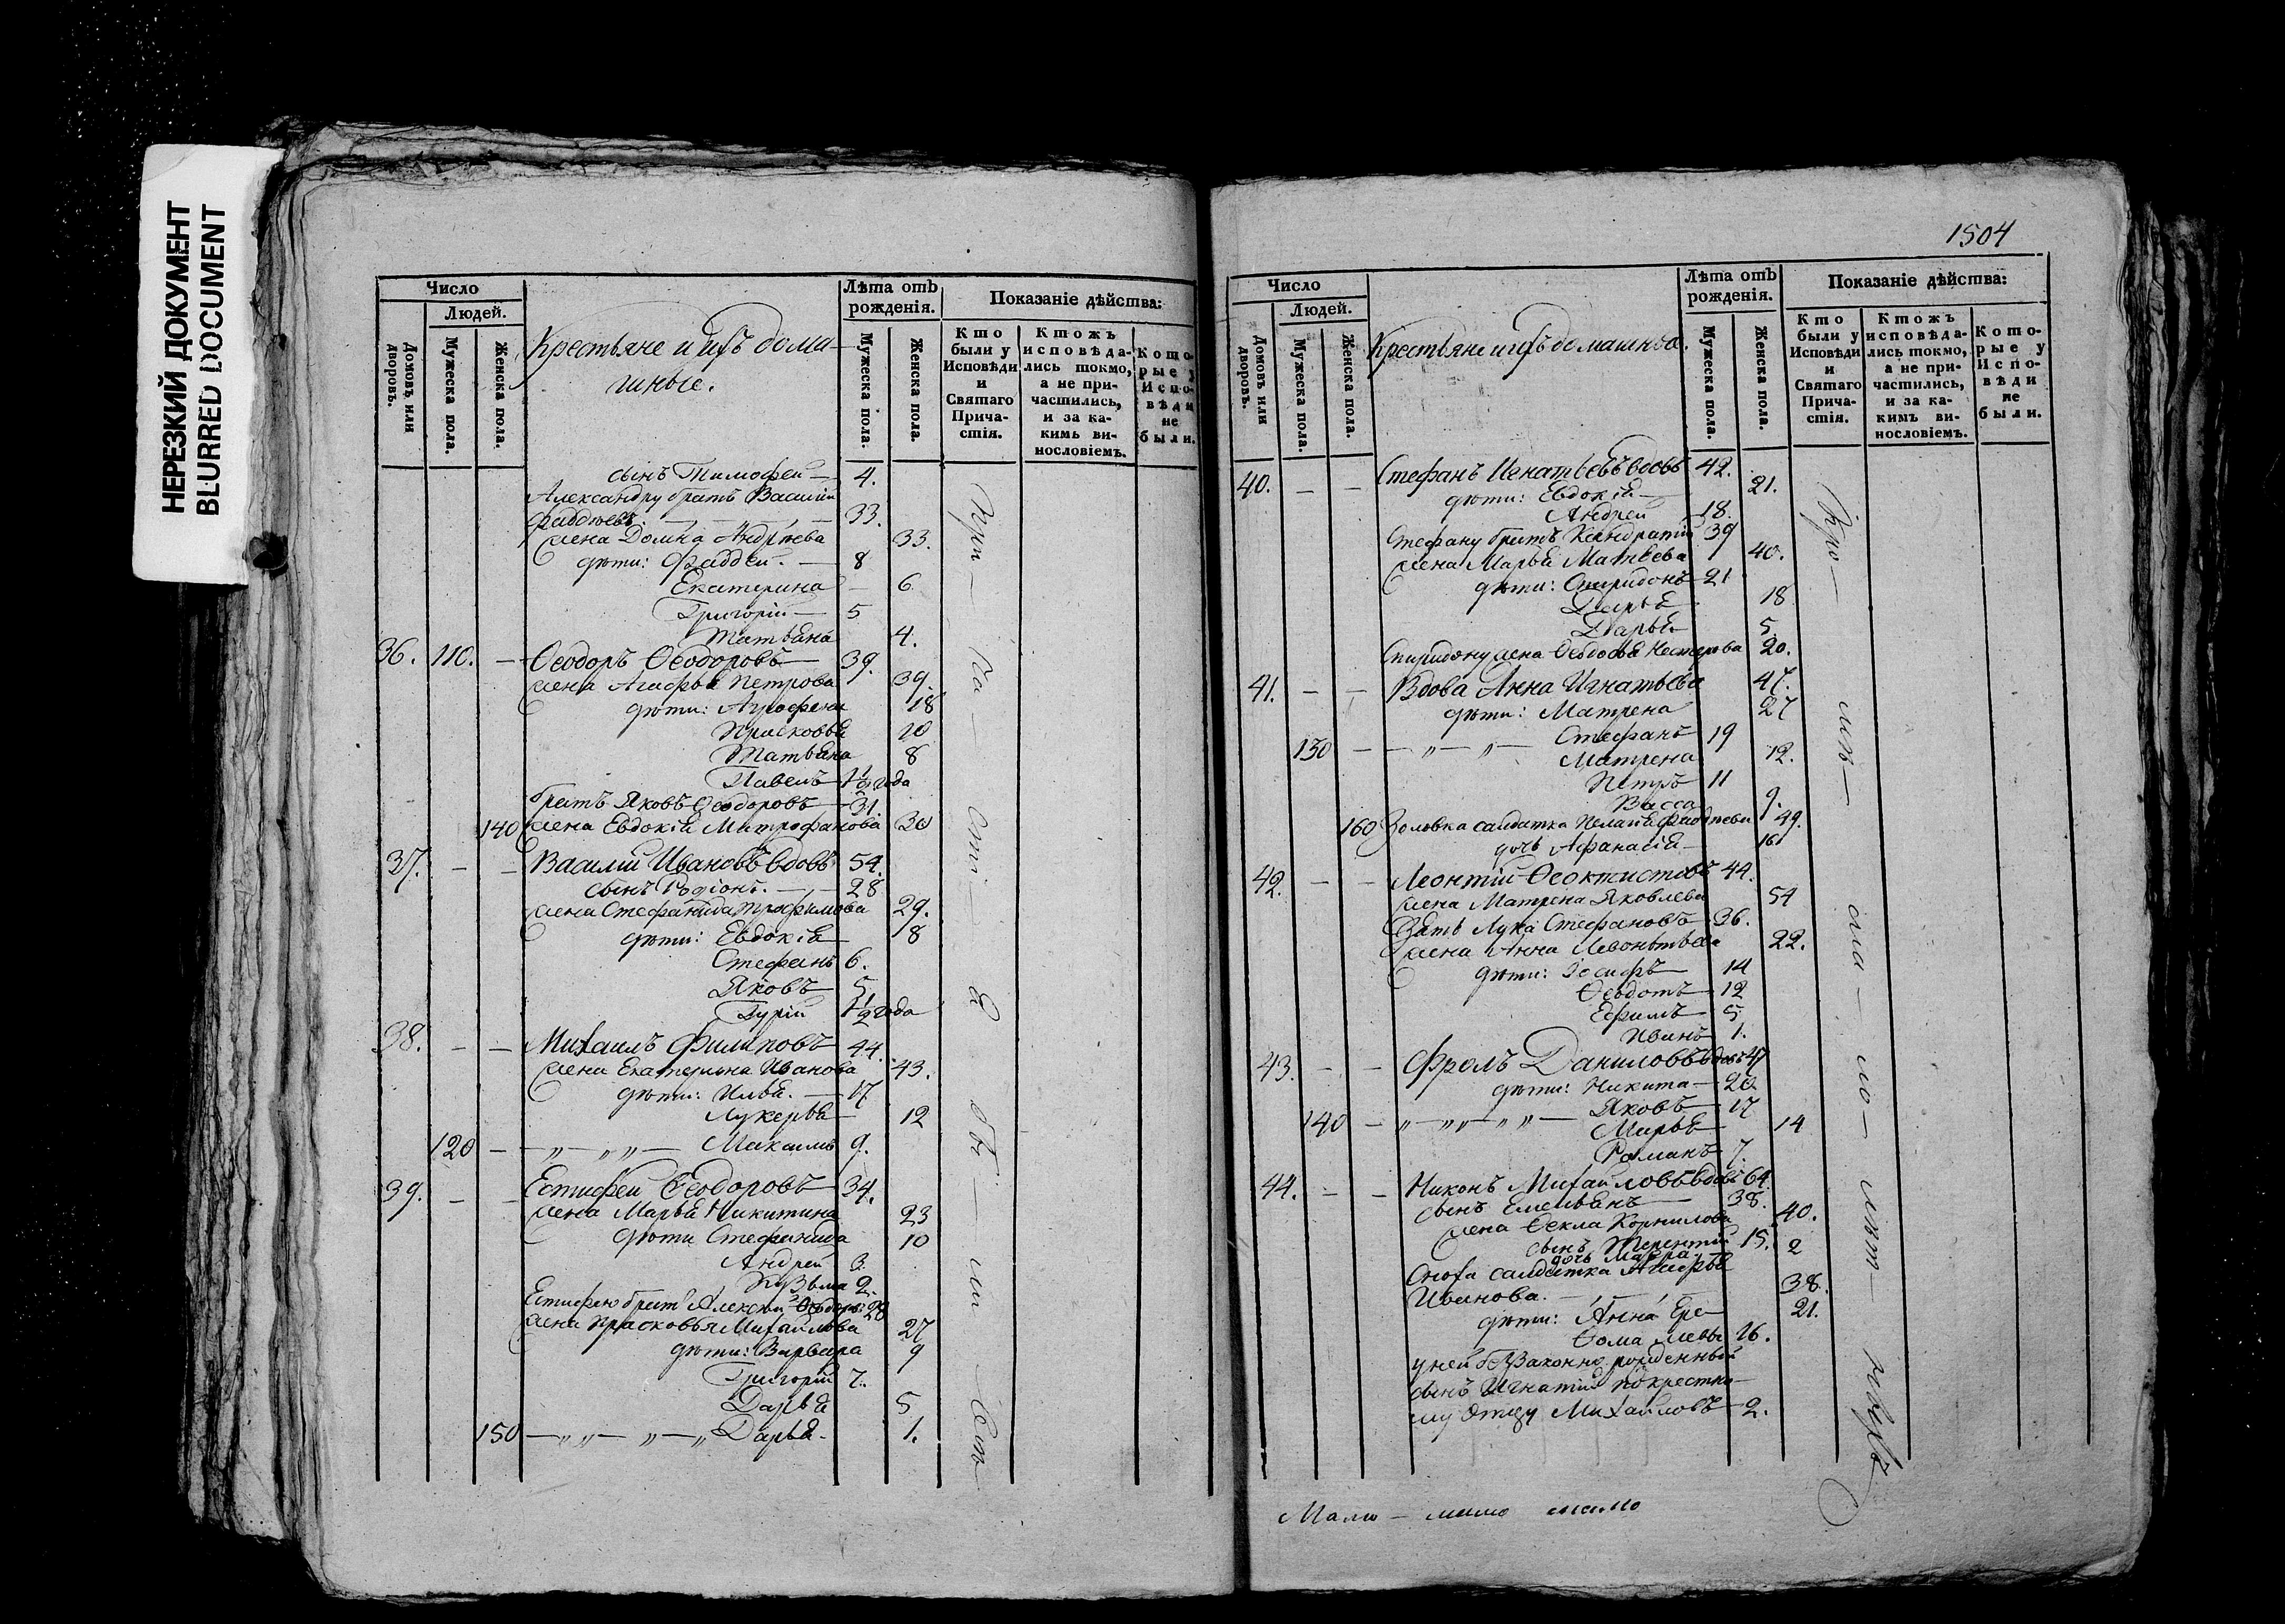 НЕРЕЗКИЙ ДОКУМЕНТ
BLURRED DOCUMENT
Число
Людей.
Домовъ или дворовъ.
Мужеска пола.
Женска пола.
Крестьяне и ихъ дома-
шные.
Лѣта отъ рожденія.
Мужеска пола.
Женска пола.
Показаніе дѣйства:
Кто были у Исповѣди и Святаго Прича-стія.
Ктожъ исповѣда-лись токмо, а не при-частились, и за ка-кимъ ви-нословіемъ.
Кото-рые у Испо-вѣди не были.
сынъ Тимофей — 4.
Александру братъ Василій
Фаддѣевъ. — 33.
жена Домна Андрѣева 33.
дѣти: Фаддей. — 8
Екатерина — 6
Григорій — 5
Татьяна 4.
36. 110. — Ѳеодоръ Ѳеодоровъ — 39.
жена Агафья Петрова 39.
дѣти: Агрофена 18
Прасковья 10
Татьяна 8
Павелъ 1½ года
братъ Яковъ Ѳеодоровъ — 31.
140 жена Евдокія Митрофанова 30
37. — — Василій Ивановъ вдовъ 54.
сынъ Родіонъ. — 28
жена Стефанида Трофимова 29.
дѣти: Евдокія — 8
Стефанъ 6.
Яковъ — 5.
Гурій 1½ года
38. — — Михаилъ Филиповъ 44.
жена Екатерина Иванова 43.
дѣти: Илья. — 17
Лукерья — 12
120 — — „ — „ — „ — Максимъ 9.
39. — — Естифей Ѳеодоровъ — 34.
жена Марья Никитина 23
дѣти Стефанида 10
Андрей 3.
Козьма 2.
Естифею братъ Алексѣй Ѳеодоръ 28
жена Прасковья Михайлова 27
дѣти: Варвара 9
Григорій 7.
Дарья 5
150 — „ „ — „ — „ Дарья. 1.
1504
Число
Людей.
Домовъ или дворовъ.
Мужеска пола
Женска пола.
Крестьяне и ихъ домашнія.
Лѣта отъ рожденія.
Мужеска пола.
Женска пола.
Показаніе дѣйства:
Кто были у Исповѣди и Святаго Прича-стія.
Ктожъ исповѣда-лись токмо, а не при-частились, и за ка-кимъ ви-нословіемъ.
Кото-рые у Испо-вѣди не были.
40. — — Стефанъ Игнатьевъ вдовъ 42.
дѣти: Евдокія — 21.
Андрей 18.
Стефану братъ Кондратій 39
жена Марья Матвѣева 40.
дѣти: Спиридонъ 21
Дарья 18
Дарья 5.
Спиридону жена Ѳеодосья Нестерова 20.
41. — — Вдова Анна Игнатьева 47.
дѣти: Матрена 27
130 — — „ — „ — Стефанъ 19
Матрена 12.
Петръ 11
Васса 9.
160 Золовка салдатка Пелагія Фаддѣева 49.
дочь Афанасія — 16
42. — — Леонтій Ѳеоктистовъ 44.
жена Матрена Яковлева 54
Зять Лука Стефановъ — 36.
жена Анна Левонтьева 22.
дѣти: Іосифъ — 14
Ѳеодотъ — 12
Ефимъ — 5
Иванъ 1.
43. — — Фролъ Даниловъ вдовъ 47
дѣти: Никита — 20
Яковъ — 17
140 — „ — „ „ — „ „ — Марья 14
Романъ 7.
44. — — Никонъ Михайловъ вдовъ 64.
сынъ Емельянъ — 38.
жена Ѳекла Корнилова 40.
сынъ Терентій 15.
дочь Мавра 2
Сноха салдатка Агафья
Иванова. — 38.
дѣти: Анна Ере- 21.
Ѳома меевы 16.
у ней беззаконно рожденный
сынъ Игнатій по крестно-
му отцу Михайловъ — 2.